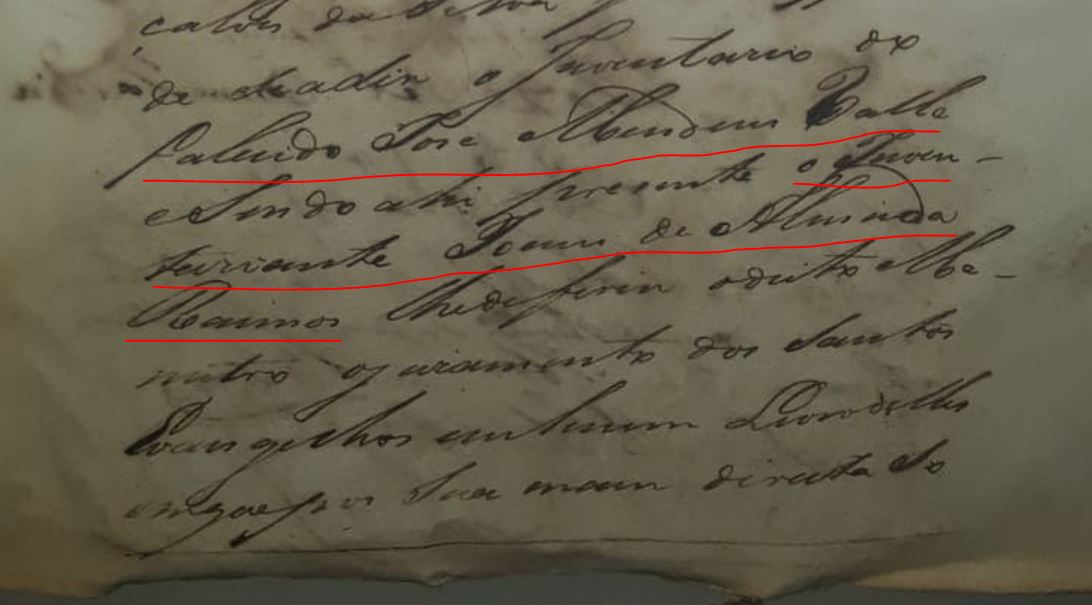 calves da Silva
de chadin o Inventario do
falecido Jose Mendens Valle
e Sendo ahi presente o Inven-
tariante Tomas de Almeida
Ramos lhe deferiu o dito Me-
nistro o juramento dos Santos
Evangelhos em hum Livro delles
em que pos sua mam direita So